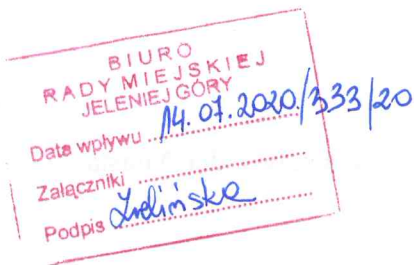 BIURO
RADY MIEJSKIEJ
JELENIEJ GÓRY
Data wpływu 14.07.2020/333/20
Załączniki
Podpis Zielińska